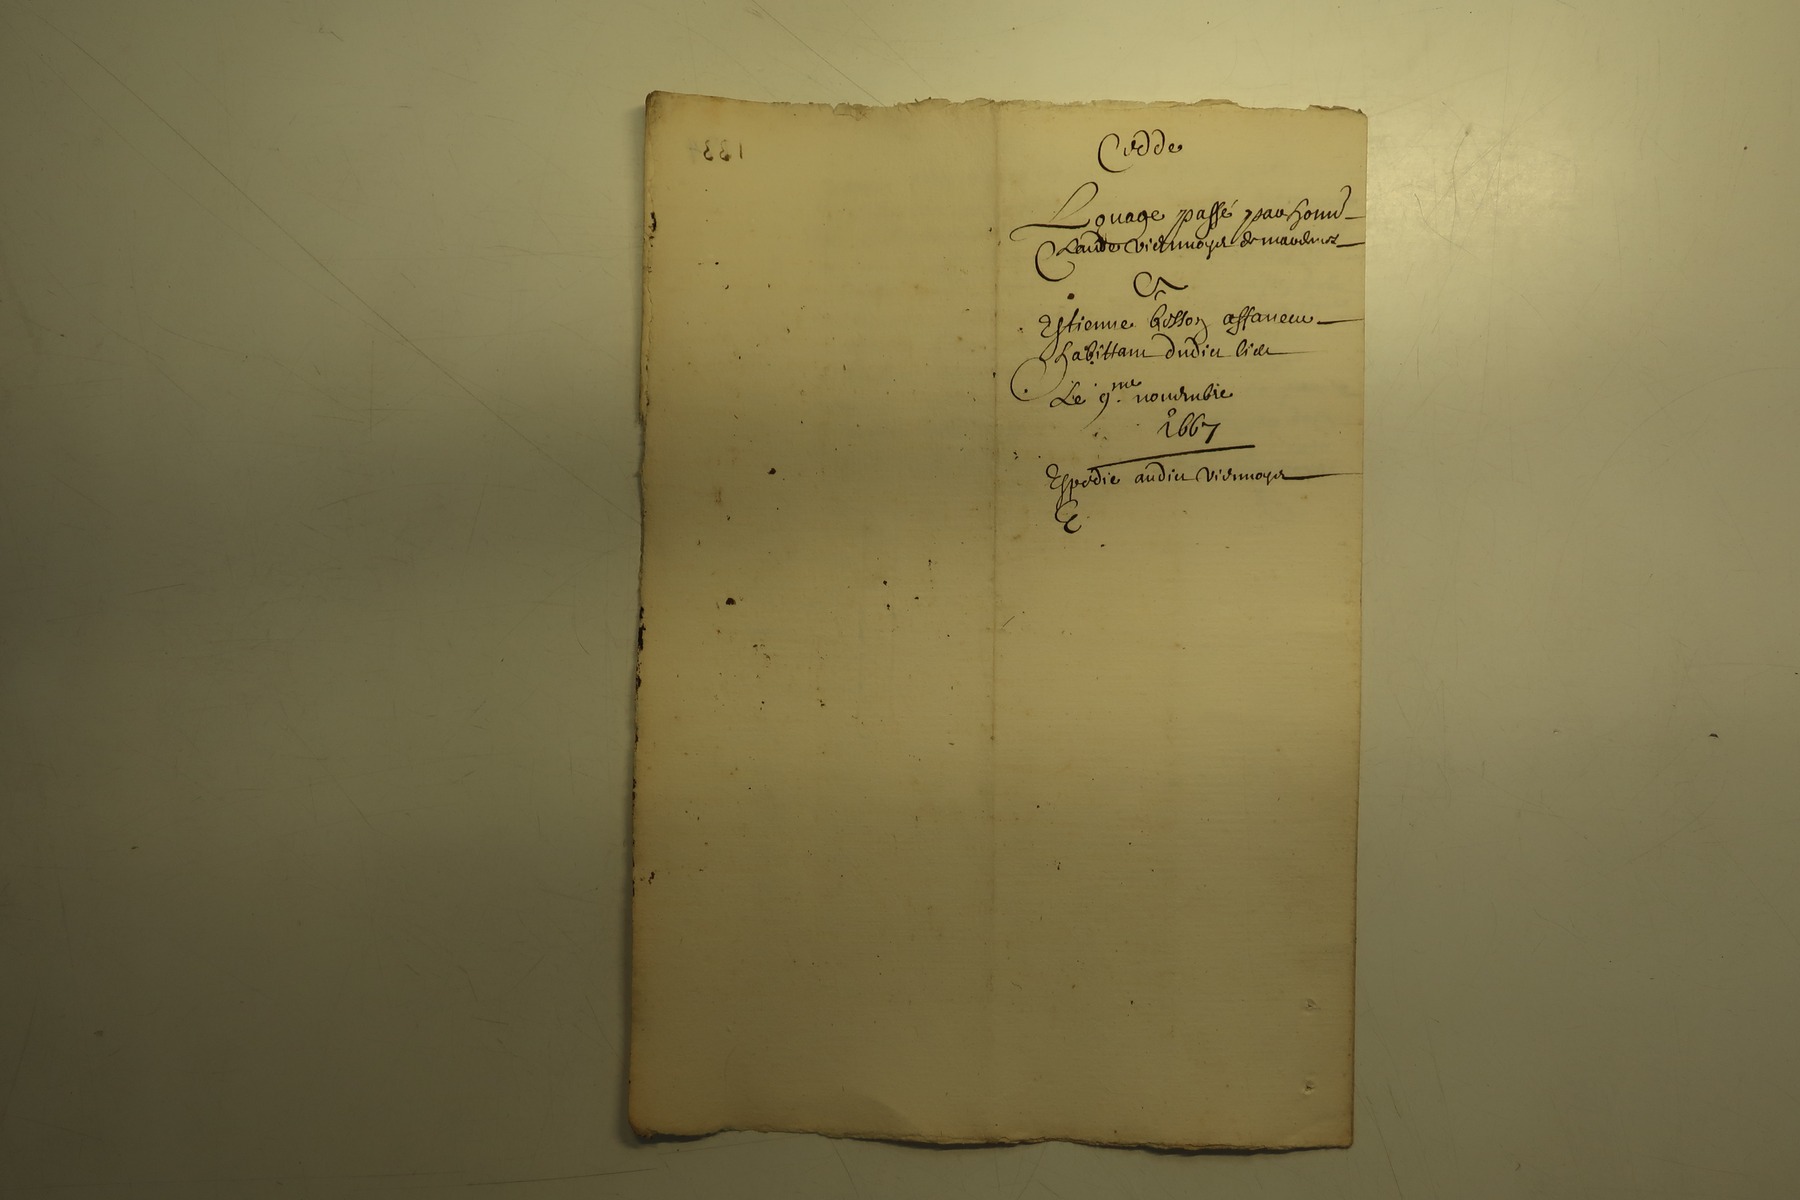 Cedde
Louage passé par hon
Claude Viennoys de
Et
Estienne besson affaneur
habittant dudict lieu
Le 9me novembre
1667
Expedie audict Viennoys
133